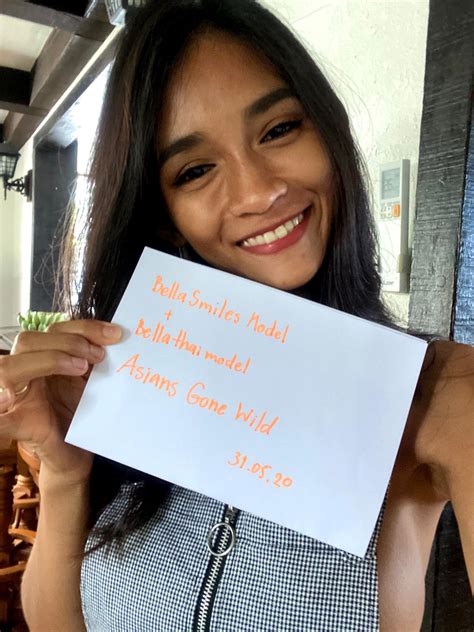 Bella Smiles Model
+
Bella-thai model
Asians Gone Wild
31.05.20